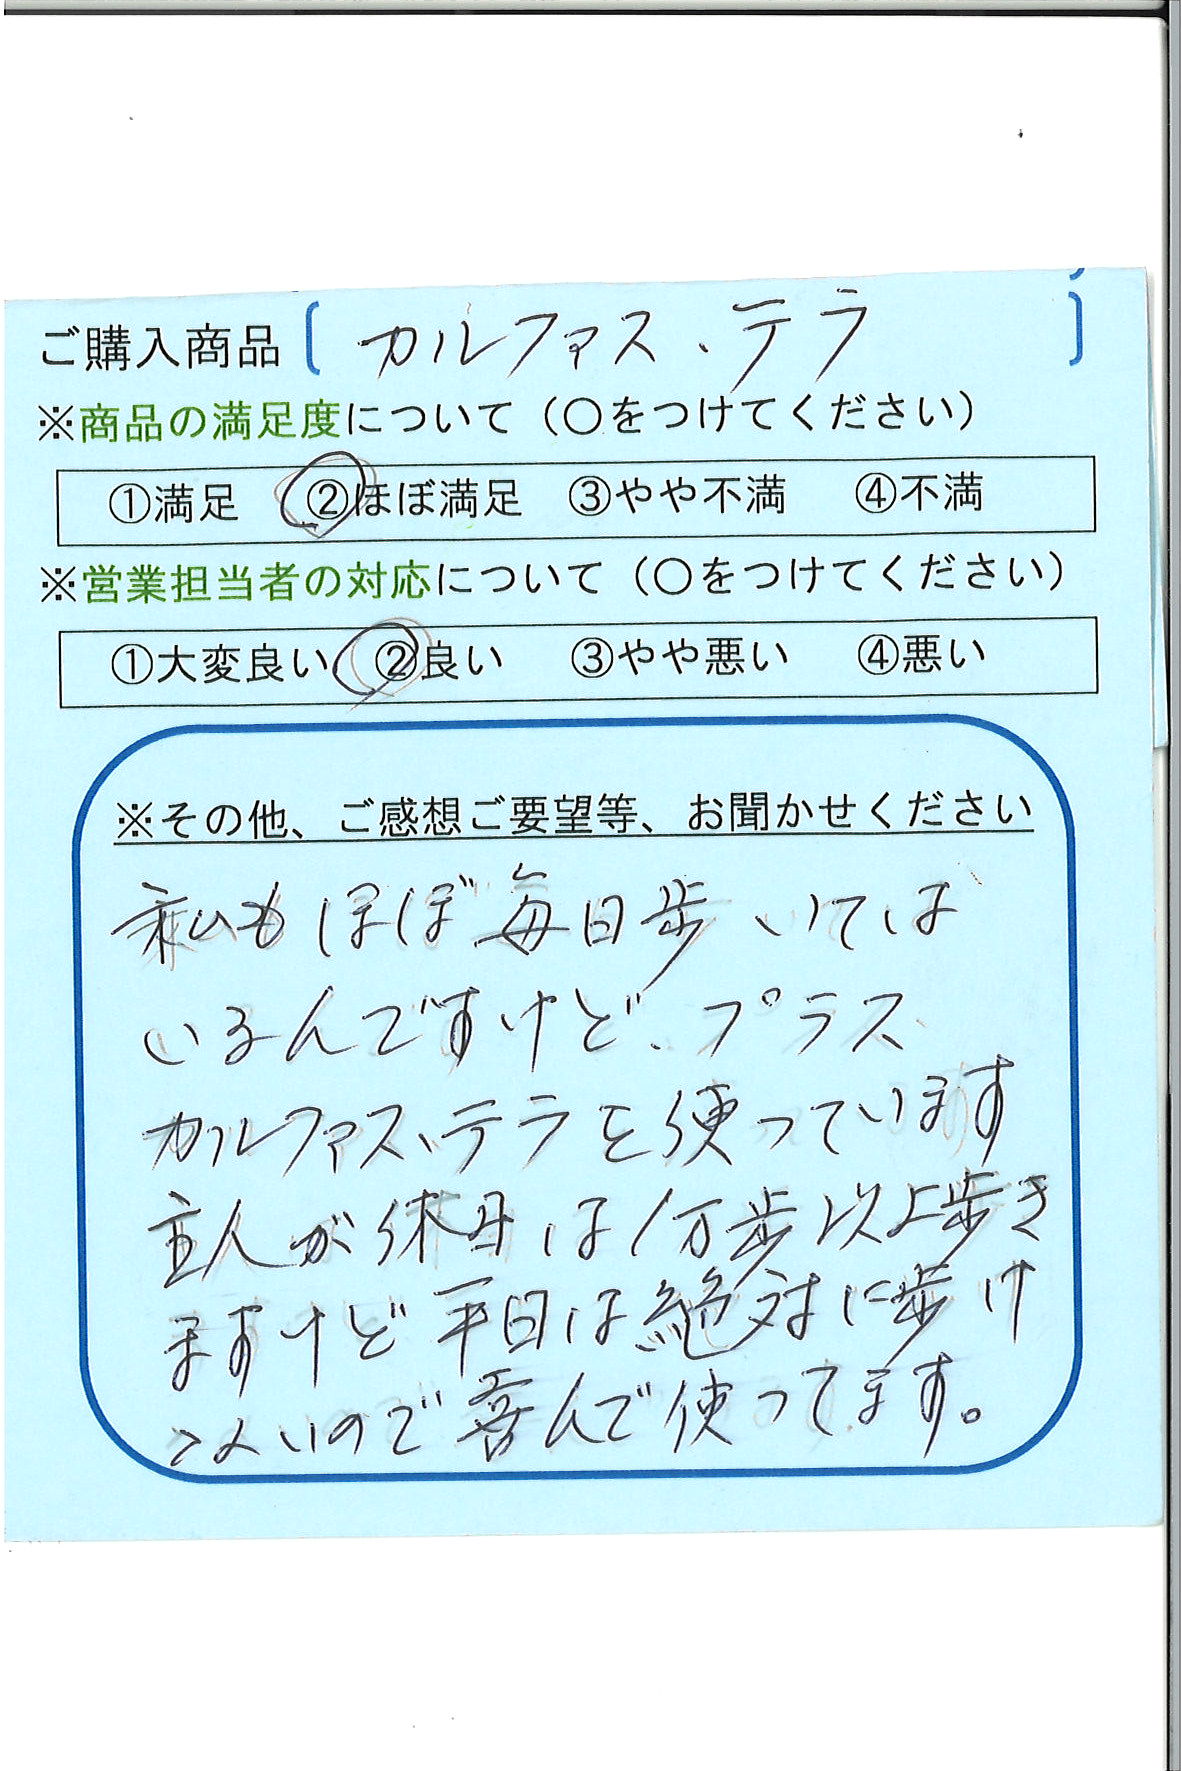 ご購入商品〔カルファス、テラ〕
※商品の満足度について（○をつけてください）
①満足 ②ほぼ満足 ③やや不満 ④不満
※営業担当者の対応について（○をつけてください）
①大変良い ②良い ③やや悪い ④悪い
※その他、ご感想ご要望等、お聞かせください
私もほぼ毎日歩いては
いるんですけど、プラス
カルファス、テラを使っています
主人が休日は1万歩以上歩き
ますけど平日は絶対に歩け
ないので喜んで使ってます。